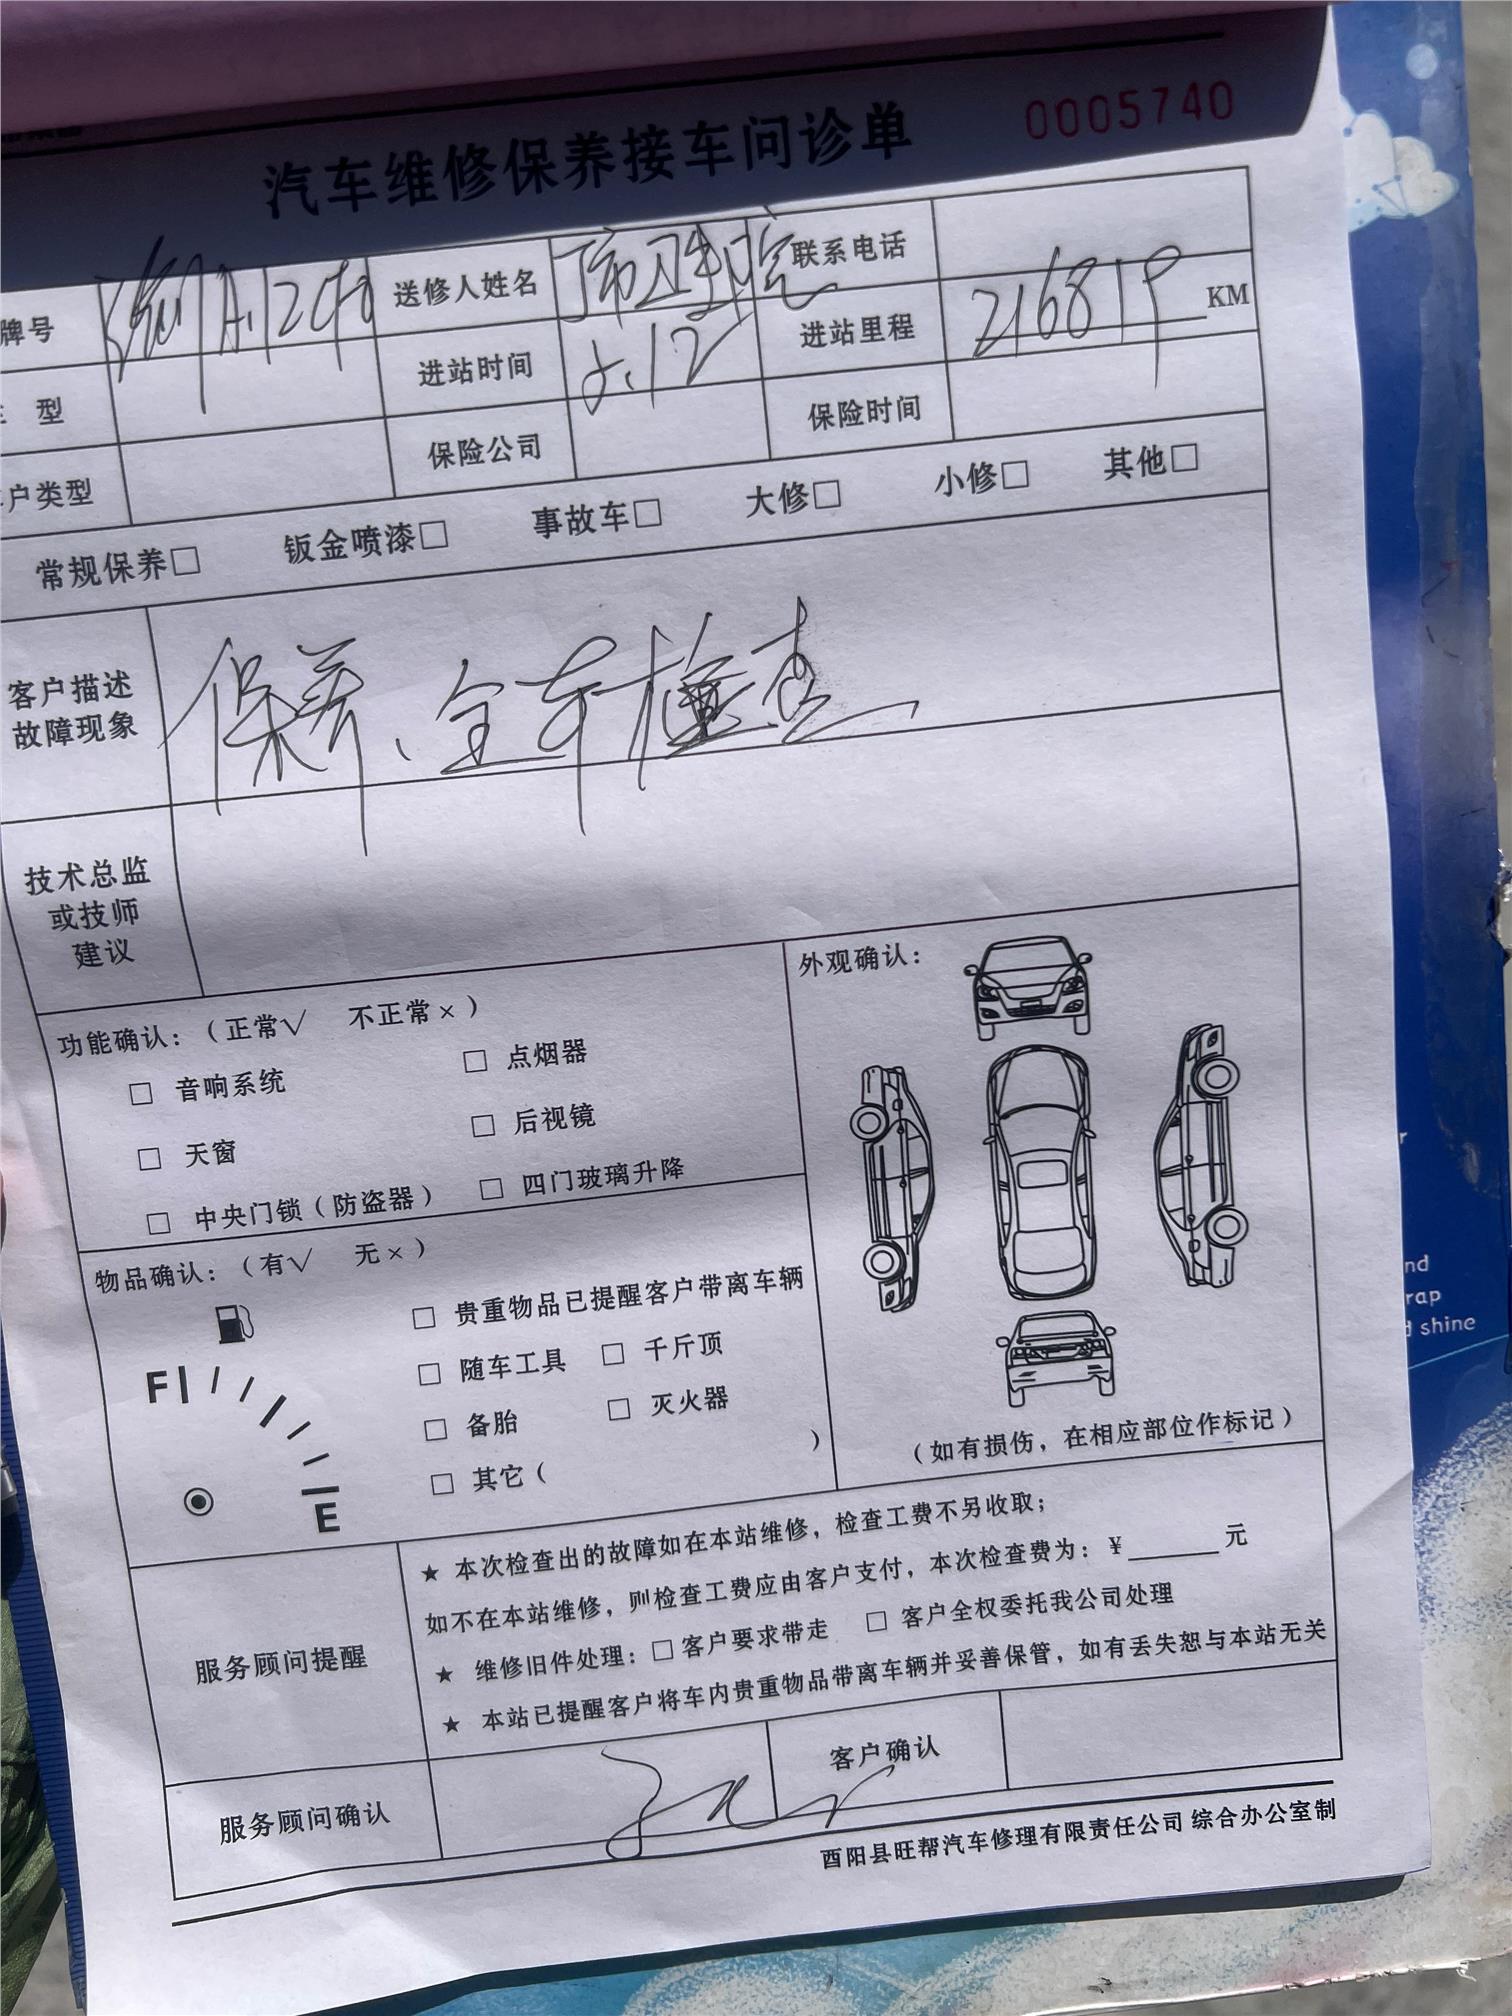 汽车维修保养接车问诊单 0005740
牌号 送修人姓名 联系电话
进站时间 进站里程 216819 KM
型 保险公司 保险时间
户类型
常规保养□ 钣金喷漆□ 事故车□ 大修□ 小修□ 其他□
客户描述
故障现象
保养、全车检查
技术总监
或技师
建议
功能确认：（正常√ 不正常×）
□ 音响系统 □ 点烟器
□ 天窗 □ 后视镜
□ 中央门锁（防盗器） □ 四门玻璃升降
外观确认：
（如有损伤，在相应部位作标记）
物品确认：（有√ 无×）
F
E
□ 贵重物品已提醒客户带离车辆
□ 随车工具 □ 千斤顶
□ 备胎 □ 灭火器
□ 其它（ ）
服务顾问提醒
★ 本次检查出的故障如在本站维修，检查工费不另收取；
如不在本站维修，则检查工费应由客户支付，本次检查费为：¥______元
★ 维修旧件处理：□客户要求带走 □ 客户全权委托我公司处理
★ 本站已提醒客户将车内贵重物品带离车辆并妥善保管，如有丢失恕与本站无关
服务顾问确认 客户确认
酉阳县旺帮汽车修理有限责任公司 综合办公室制
nd
rap
shine